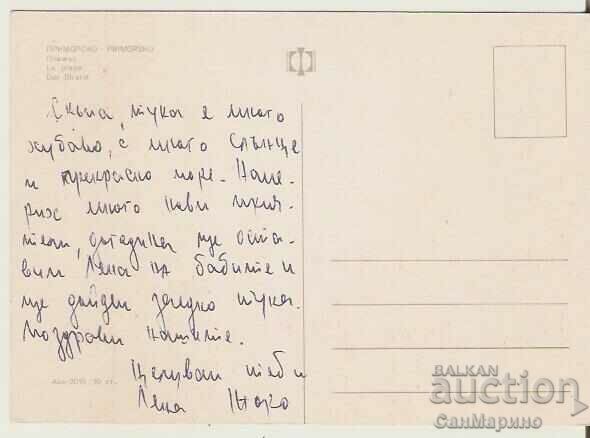 ПРИМОРСКО - PRIMORSKO
Плажът
La plage
Der Strand
Скъпа, тука е много
хубаво, с много слънце
и прекрасно море. Наме-
рих много нови прия-
тели, догодина ще оста-
вим Ляна на бабите и
ще дойдем заедно тука.
Поздрави нашите.
Целувам теб и
Ляна
Акл-2015 10 ст.
BALKAN
auction
СанМарино